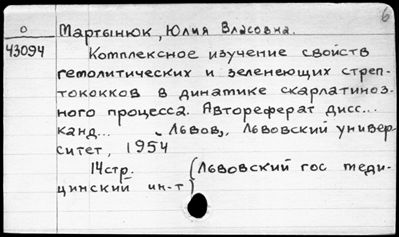 6
О Мартынюк, Юлия Власовна.
43094 Комплексное изучение свойств
гемолитических и зеленеющих стреп-
тококков в динамике скарлатиноз-
ного процесса. Автореферат дисс...
канд... Львов, Львовский универ-
ситет, 1954
14стр. {Львовский гос меди-
цинский ин-т